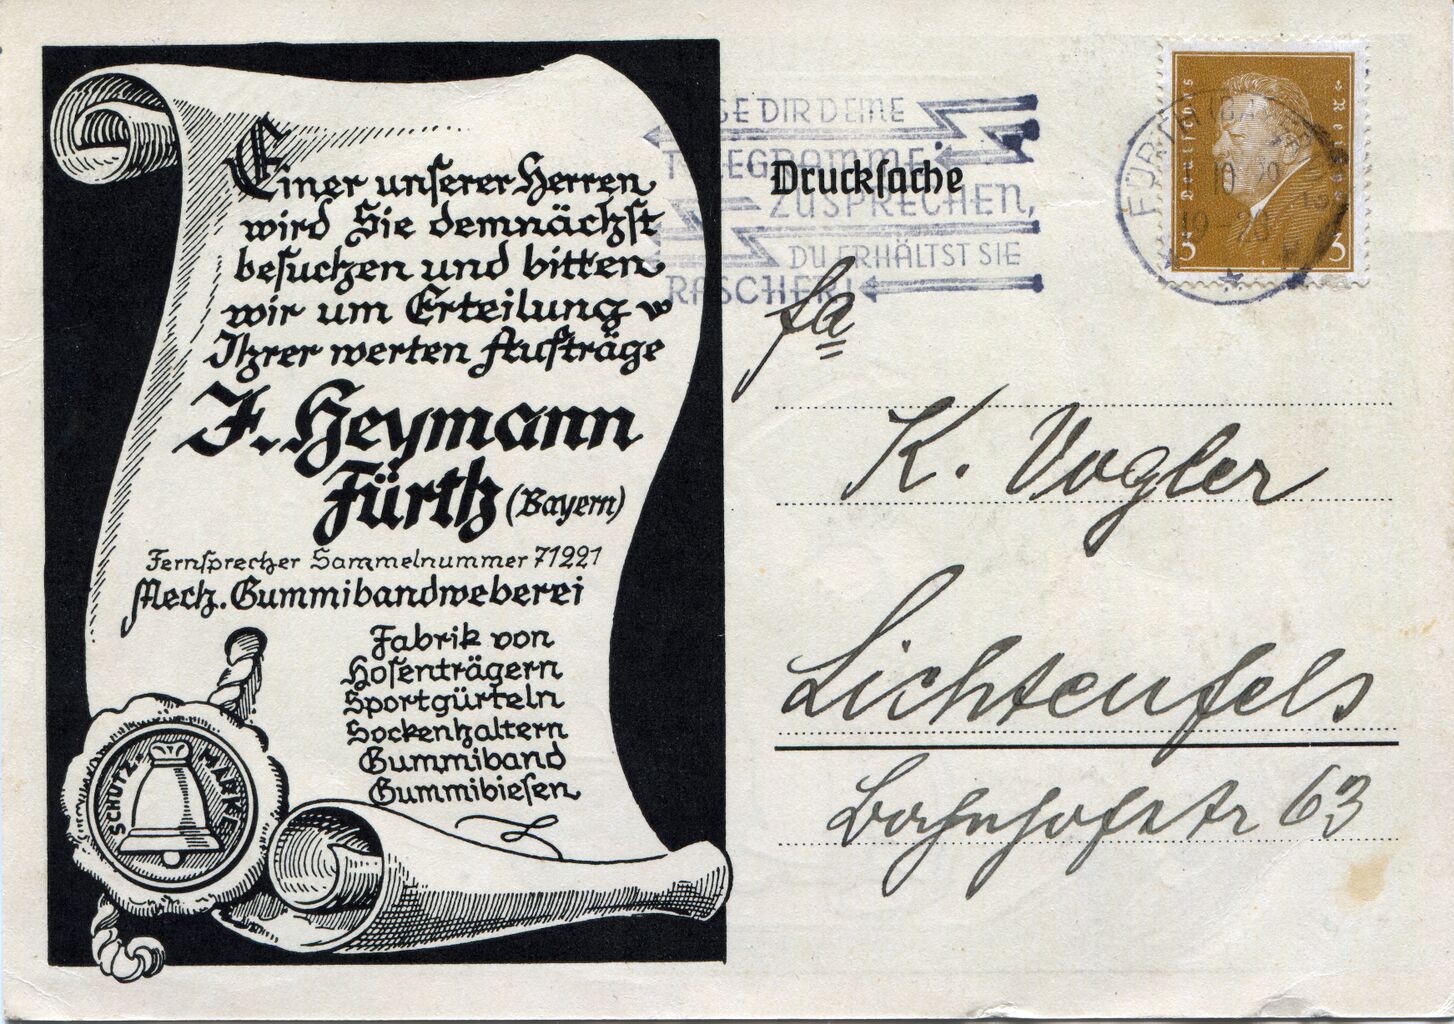 Einer unserer Herren
wird Sie demnächst
besuchen und bitten
wir um Erteilung
Ihrer werten Aufträge
J. Heymann
Fürth (Bayern)
Fernsprecher Sammelnummer 71221
Mech. Gummibandweberei
Fabrik von
Hosenträgern
Sportgürteln
Sockenhaltern
Gummiband
Gummibiesen
SCHUTZ-MARKE
GE DIR DEINE
TELEGRAMME
ZUSPRECHEN,
DU ERHÄLTST SIE
RASCHER!
Drucksache
Deutsches Reich
3 3
FÜRTH (BAYERN)
19-20
Fa
K. Vogler
Lichtenfels
Bahnhofstr 63